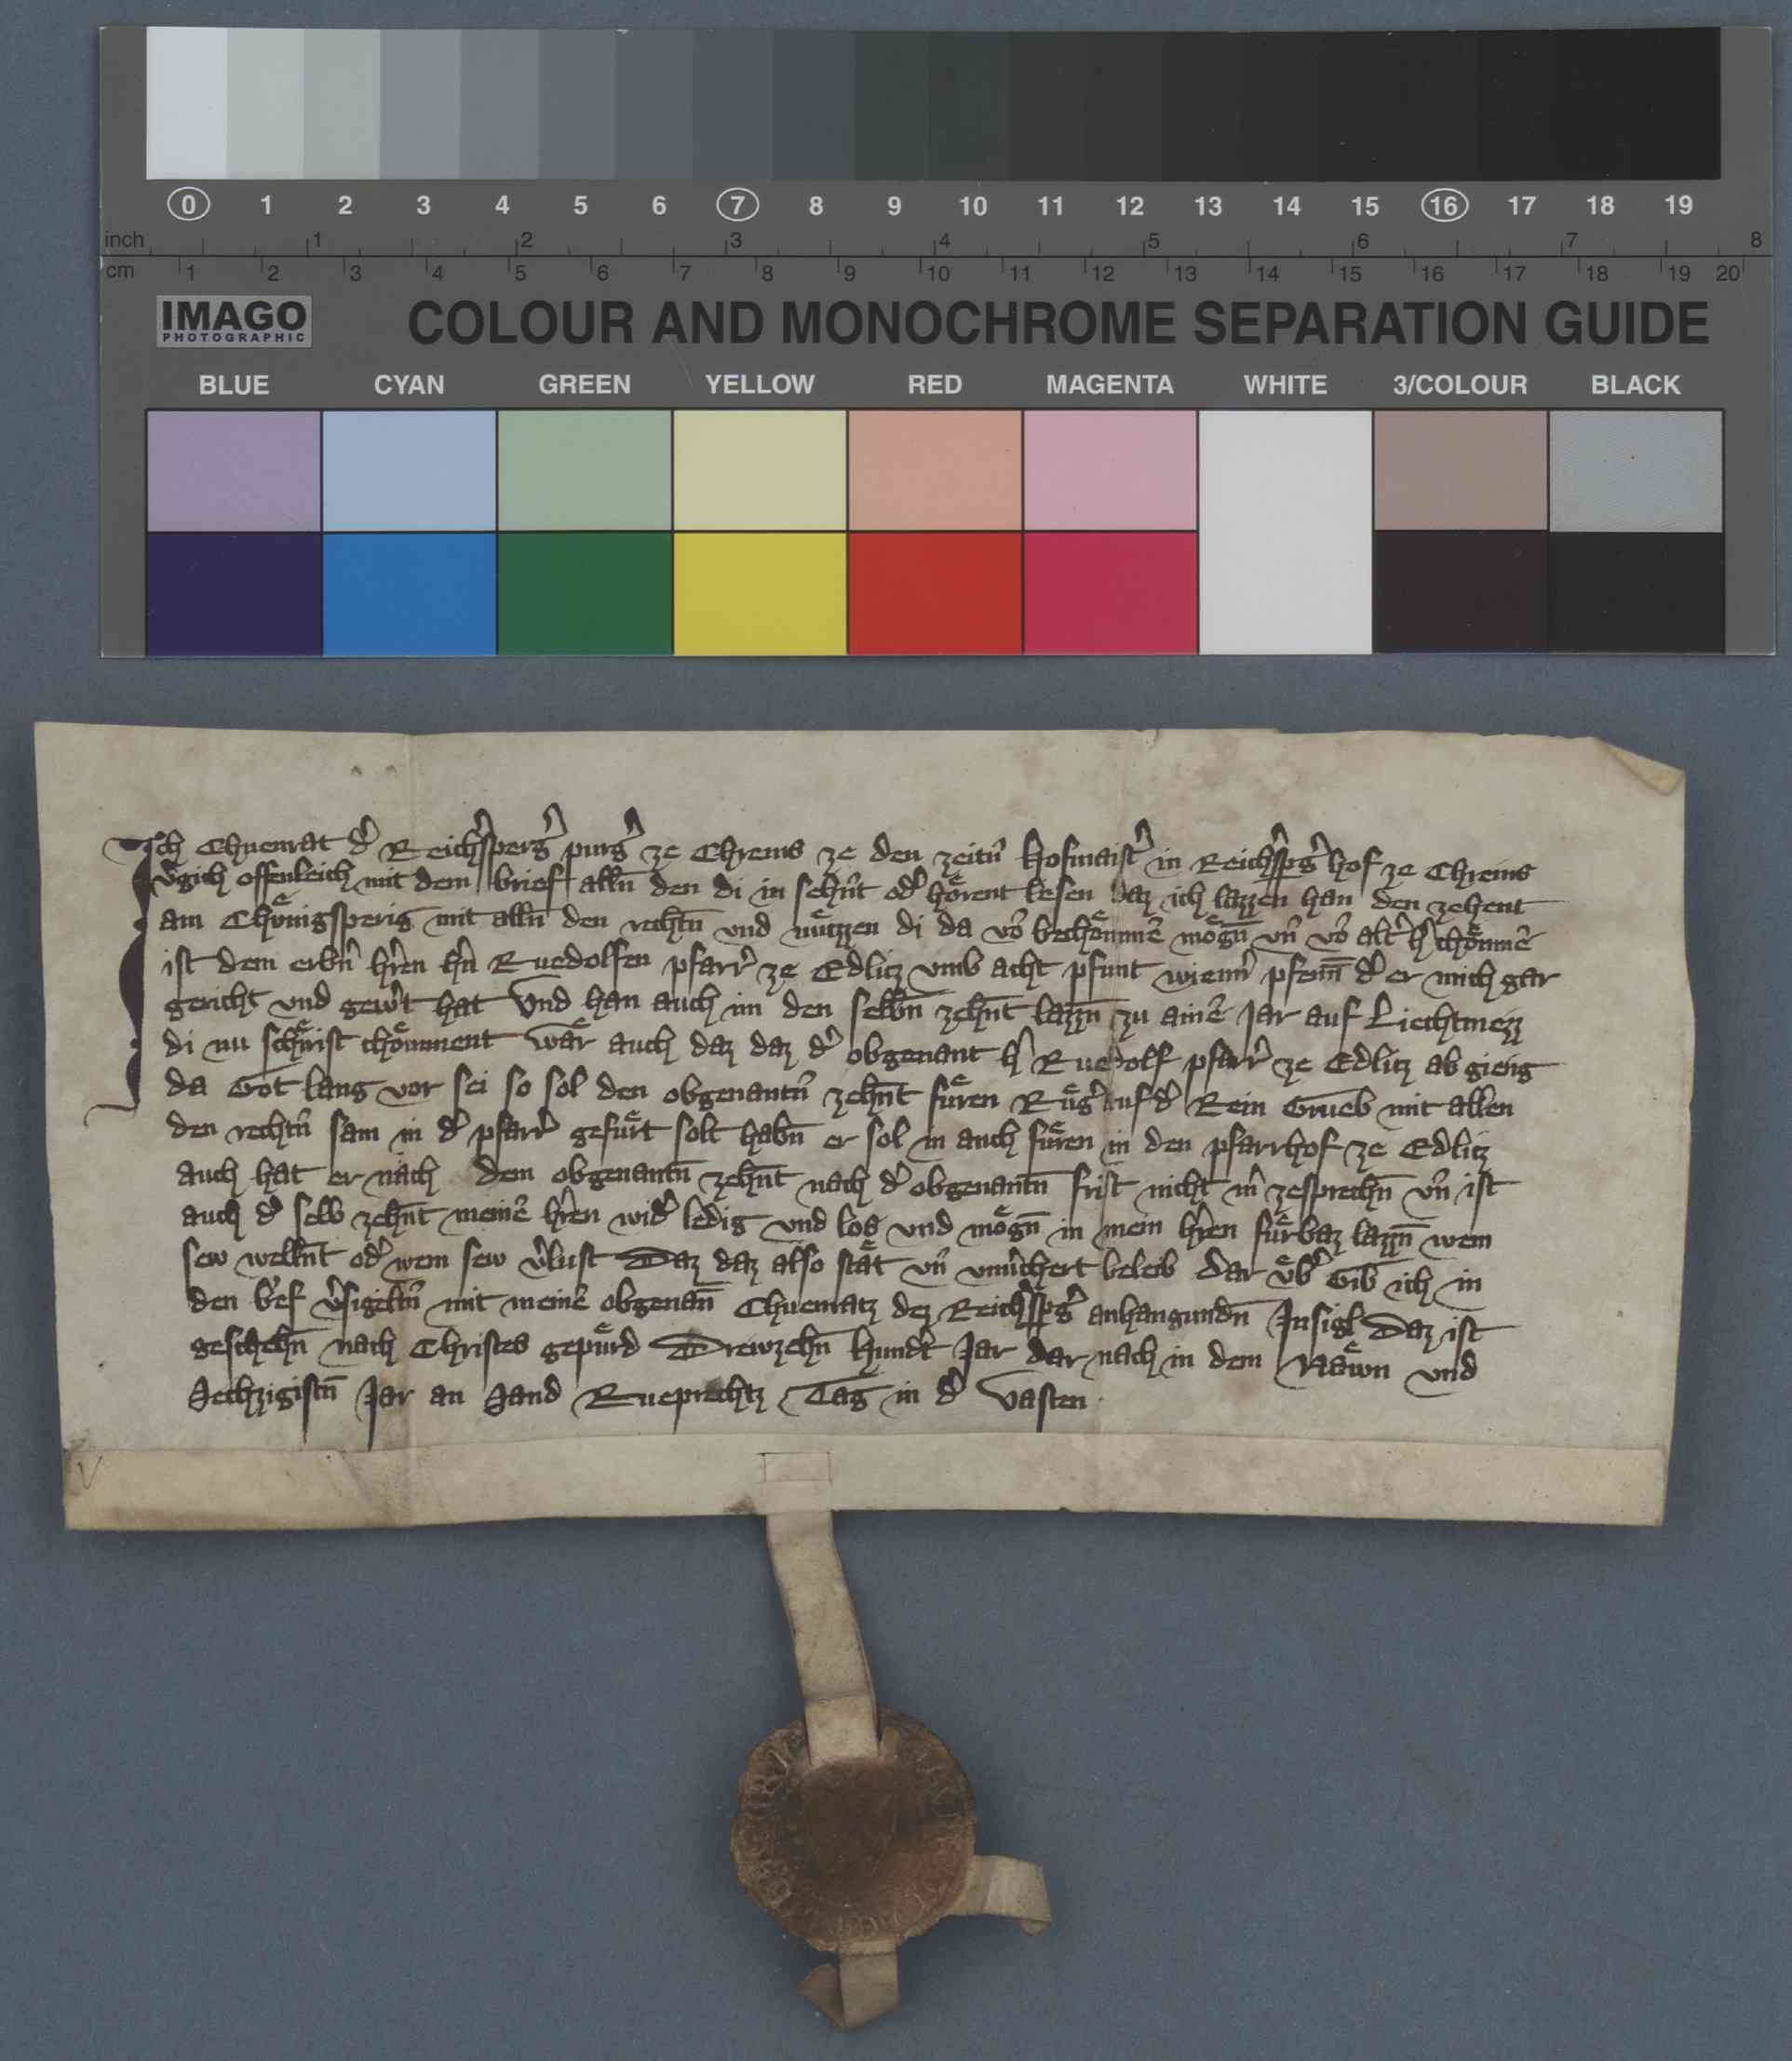 0 1 2 3 4 5 6 7 8 9 10 11 12 13 14 15 16 17 18 19
inch 1 2 3 4 5 6 7 8
cm 1 2 3 4 5 6 7 8 9 10 11 12 13 14 15 16 17 18 19 20
IMAGO
PHOTOGRAPHIC
COLOUR AND MONOCHROME SEPARATION GUIDE
BLUE CYAN GREEN YELLOW RED MAGENTA WHITE 3/COLOUR BLACK
Ich Chuenrat d᷑ Reich᷑sperg᷑ purg᷑ ze Chrems ze den zeitn̄ hofmaist᷑ in Reich᷑spg᷑ hof ze Chrems
v᷑gich offenleich mit dem brief alln̄ den di in sehn̄t od᷑ hoͤrent lesen daz ich lazzen han den zehent
am Choͤnigsperig mit alln̄ den rechtn̄ vnd nuͤtzzen di da vō bechoͤmmē moͤgn̄ vn̄ vō alt᷑ h᷑choͤmē
ist dem erbn̄ h᷑ren h᷑n Ruedolfen pfarr᷑ ze Edlitz vmb acht pfunt wienn᷑ pfenn̄ d᷑ er mich gar
gericht vnd gew᷑t hat Vnd han auch im den selbn̄ zehn̄t lazzn̄ zu ainē Jar auf Liechtmezz
di nu schi᷑rist choͤmment waͤr auch daz daz d᷑ obgenant h᷑ Ruedolf pfarr᷑ ze Edlitz ab gieng
da Got lang vor sei so sol den obgenantn̄ zehn̄t fuͤren Ruͤg᷑ auf d᷑ Rein Grueb mit allen
den rechtn̄ sam in d᷑ pfarr᷑ gefuͤrt solt habn̄ er sol in auch fuͤren in den pfarrhof ze Edlitz
auch hat er nach dem obgenantn̄ zehn̄t nach d᷑ obgenantn̄ frist nicht m᷑ zesprechn̄ vn̄ ist
auch d᷑ selb zehn̄t meinē h᷑ren wid᷑ ledig vnd los vnd moͤgn̄ in mein h᷑ren fuͤrbaz lazzn̄ wem
sew welln̄t od᷑ wem sew v᷑lust Daz daz also staͤt vn̄ vnu᷑chert beleib dar vͤb᷑ Gib ich in
den b᷑ef v᷑sigeltn̄ mit meinē obgenan̄ Chuenratz dez Reich᷑spg᷑ anhangundn̄ Insigl Daz ist
geschehn̄ nach Christes gepuͤrd Drewzehn̄ hund᷑t Jar dar nach in dem Naͤwn vnd
Sechzigistn̄ Jar an Sand Rueprechtz Tag in d᷑ Vasten